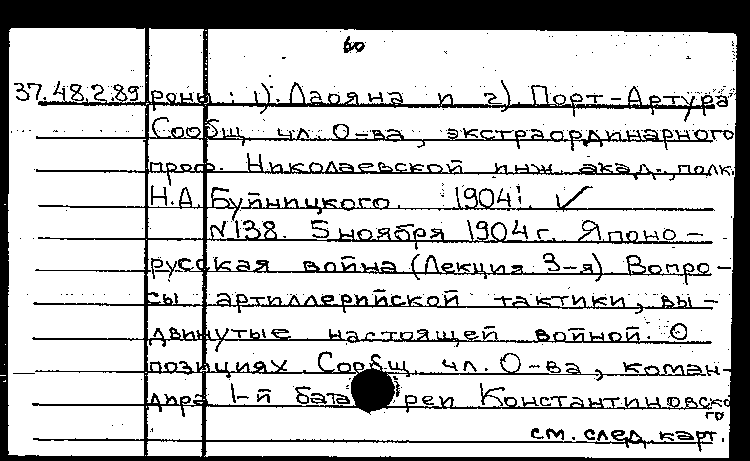 60
37.48.2.89 роны: 1). Лаояна и 2). Порт-Артура
Сообщ. чл. О-ва, экстраординарного
проф. Николаевской инж. акад., полк.
Н.А. Буйницкого. 1904г. ✓
№138. 5 ноября 1904г. Японо-
русская война (Лекция 3-я) Вопро-
сы артиллерийской тактики, вы-
двинутые настоящей войной. О
позициях. Сообщ. чл. О-ва, коман-
дира 1-й бата реи Константиновско
го
см. след. карт.